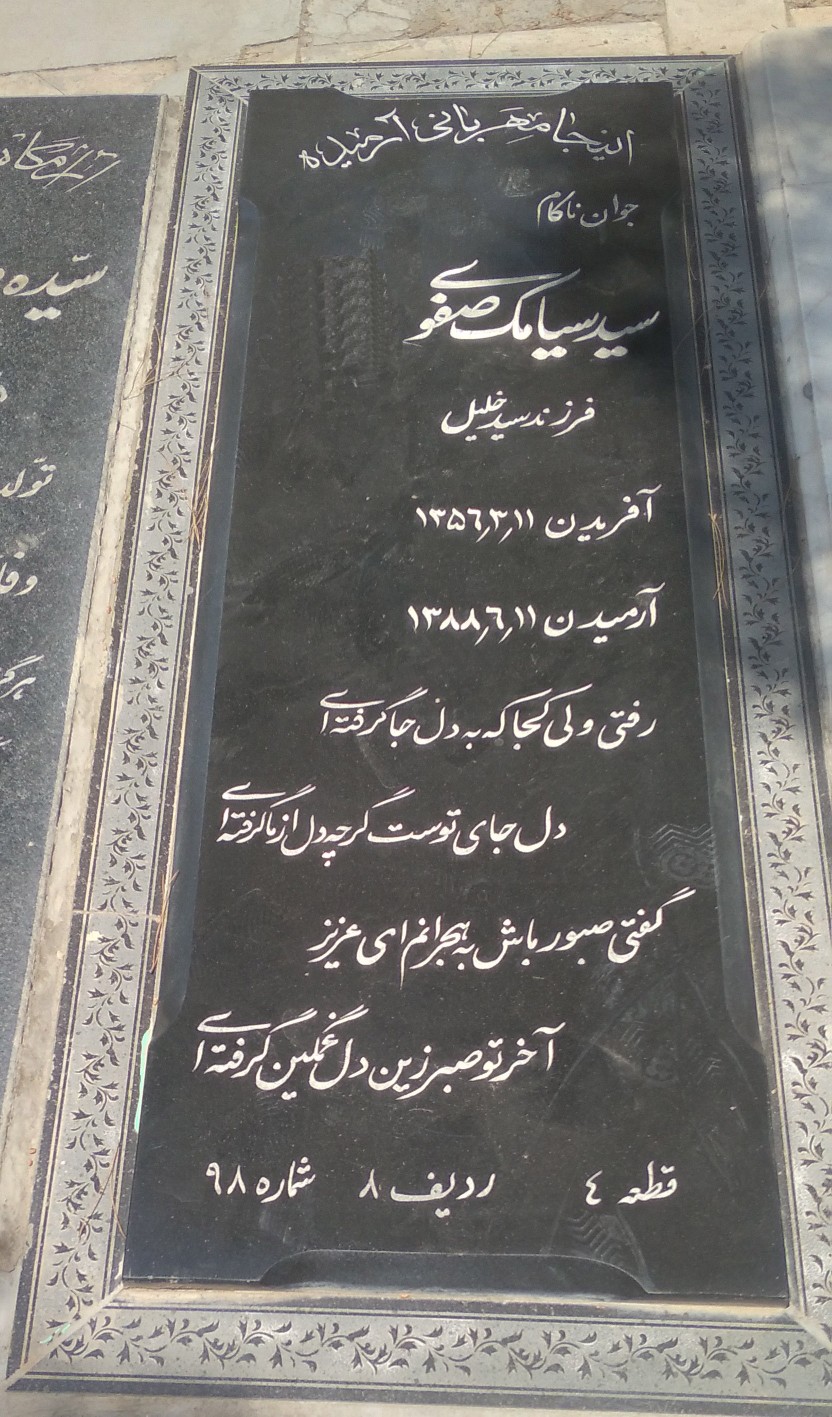 اینجا مهربانی آرمیده
جوان ناکام
سید سیامک صفوی
فرزند سید خلیل
آفریدن ۱۳۵٦,۳,۱۱
آرمیدن ۱۳۸۸,٦,۱۱
رفتی ولی کجا که به دل جا گرفته ای
دل جای توست گرچه دل از ما گرفته ای
گفتی صبور باش به هجرانم ای عزیز
آخر تو صبر زین دل غمگین گرفته ای
قطعه ٤ ردیف ۸ شماره ۹۸
سیّده